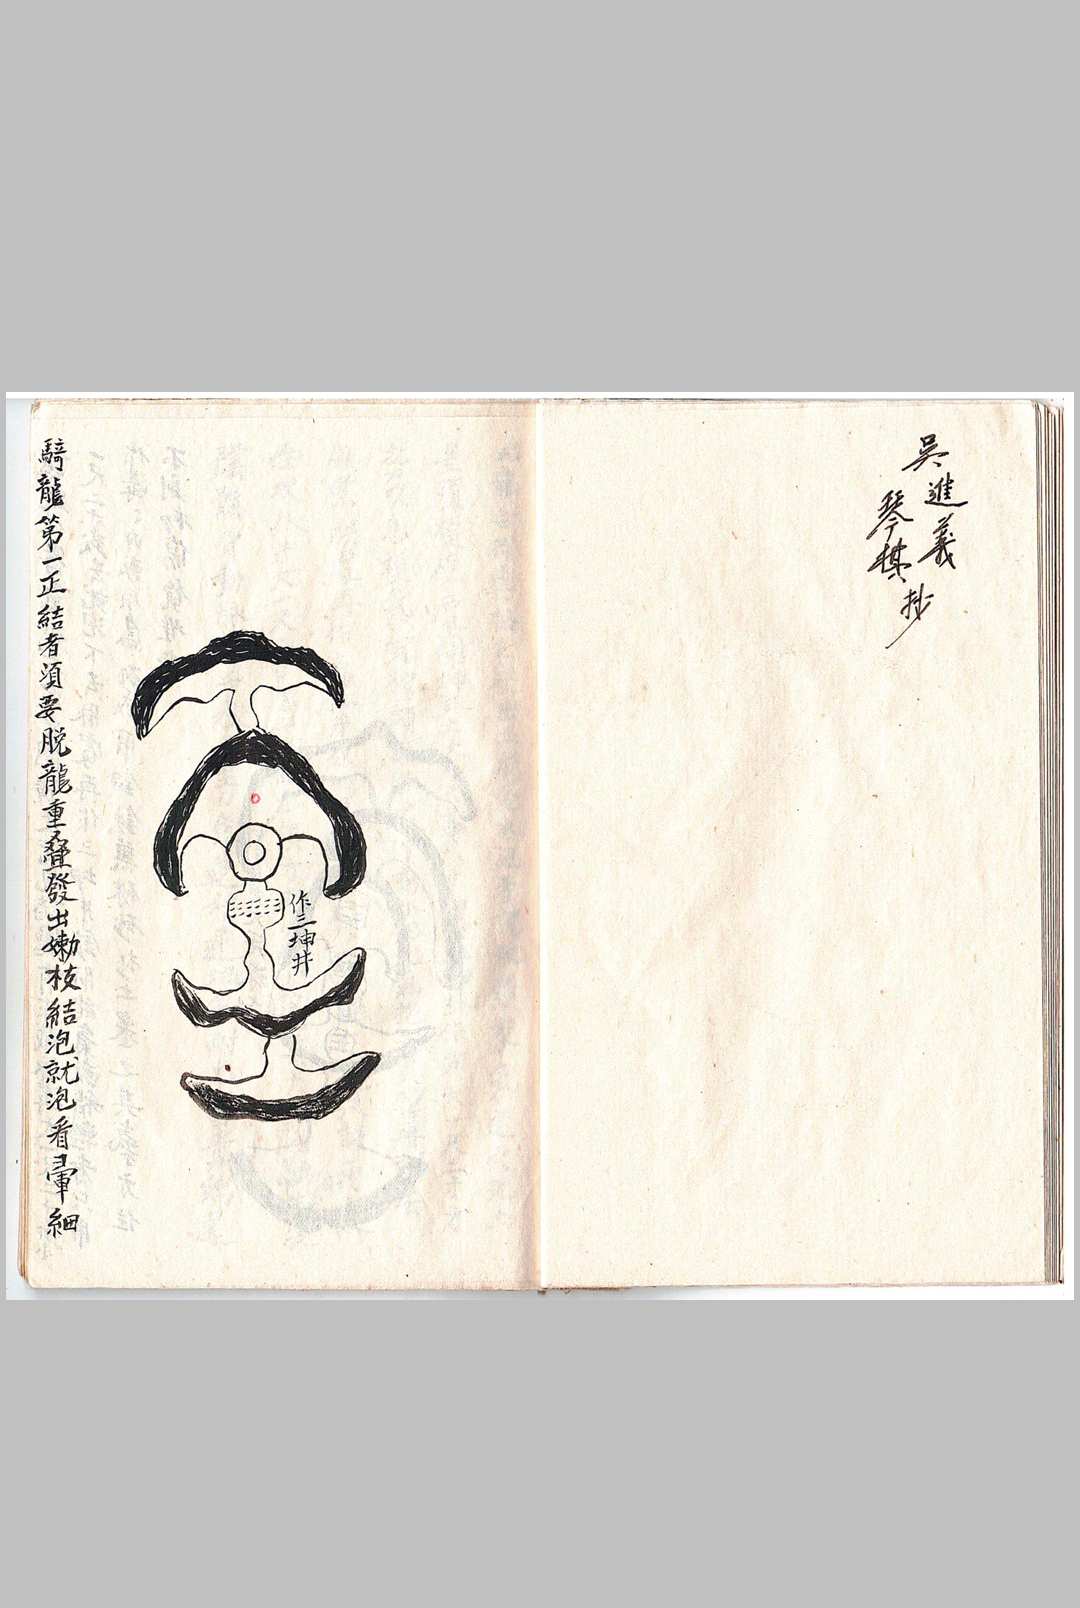 吳進義
琴棋抄
作三坤井
騎龍第一正結者須要脱龍重叠發出嫩枝結泡就泡看暈細